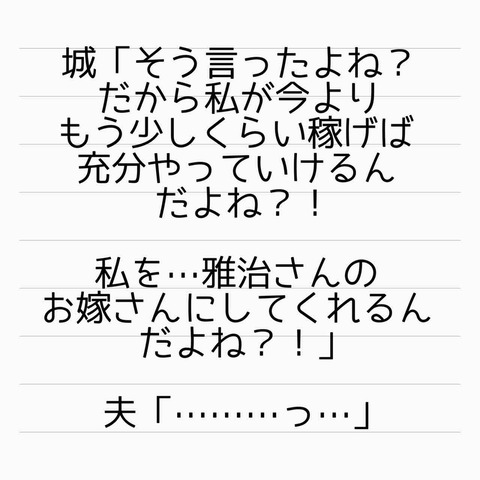 城「そう言ったよね？
だから私が今より
もう少しくらい稼げば
充分やっていけるん
だよね？！
私を…雅治さんの
お嫁さんにしてくれるん
だよね？！」
夫「………っ…」